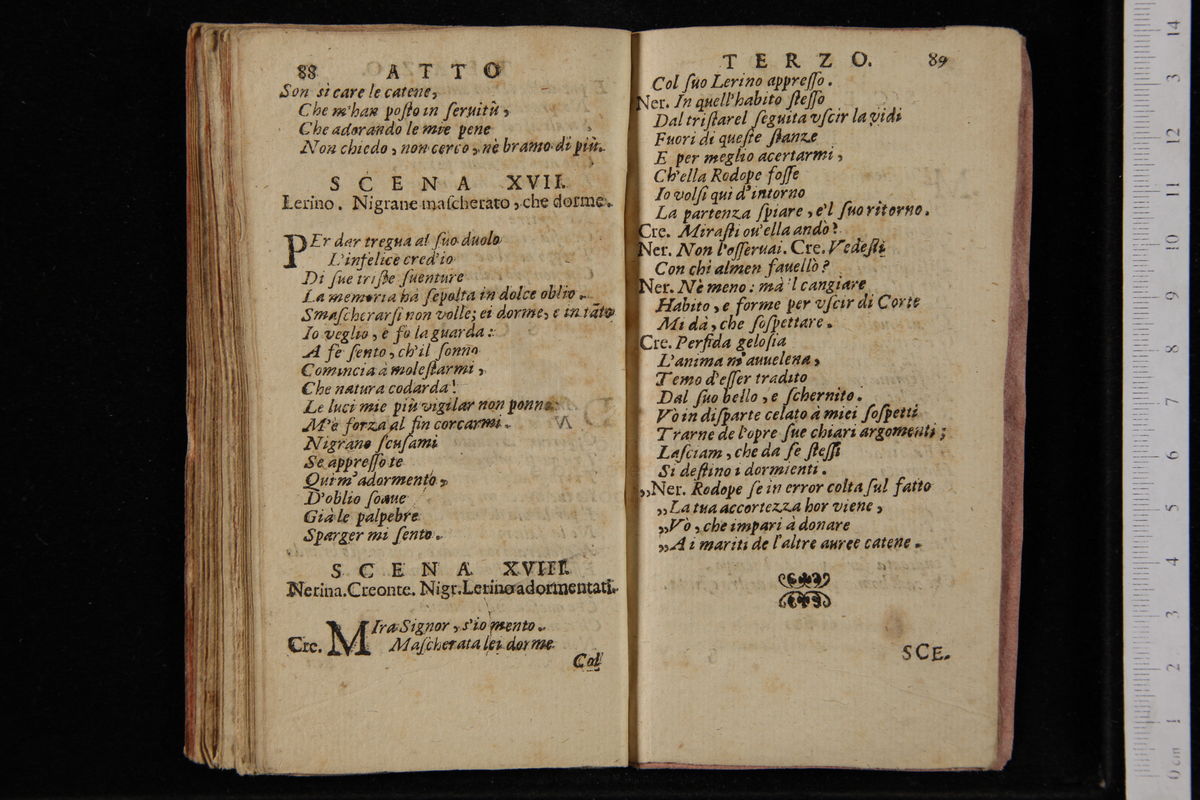 88 ATTO
Son sì care le catene,
Che m'han posto in seruitù,
Che adorando le mie pene
Non chiedo, non cerco, nè bramo di più.
SCENA XVII.
Lerino. Nigrane mascherato, che dorme.
PEr dar tregua al suo duolo
L'infelice cred'io
Di sue triste suenture
La memoria hà sepolta in dolce oblio.
Smascherarsi non volle; ei dorme, e in tāto
Io veglio, e fò la guarda:
A fè sento, ch'il sonno
Comincia à molestarmi,
Che natura codarda!
Le luci mie più vigilar non ponno
M'è forza al fin corcarmi.
Nigrane scusami
Se appresso te
Qui m'adormento,
D'oblio soaue
Già le palpebre
Sparger mi sento.
SCENA XVIII.
Nerina. Creonte. Nigr. Lerino adormentati.
MIra Signor, s'io mento.
Cre. Mascherata lei dorme
Col
TERZO. 89
Col suo Lerino appresso.
Ner. In quell'habito stesso
Dal tristarel seguita vscir la vidi
Fuori di queste stanze
E per meglio acertarmi,
Ch'ella Rodope fosse
Io volsi qui d'intorno
La partenza spiare, e'l suo ritorno.
Cre. Mirasti ou'ella andò?
Ner. Non l'osseruai. Cre. Vedesti
Con chi almen fauellò?
Ner. Nè meno: mà 'l cangiare
Habito, e forme per vscir di Corte
Mi dà, che sospettare.
Cre. Perfida gelosia
L'anima m'auuelena,
Temo d'esser tradito
Dal suo bello, e schernito.
Vò in disparte celato à miei sospetti
Trarne de l'opre sue chiari argomenti;
Lasciam, che da se stessi
Si destino i dormienti.
„Ner. Rodope se in error colta sul fatto
„La tua accortezza hor viene,
„Vò, che impari à donare
„A i mariti de l'altre auree catene.
SCE.
0 cm 1 2 3 4 5 6 7 8 9 10 11 12 13 14